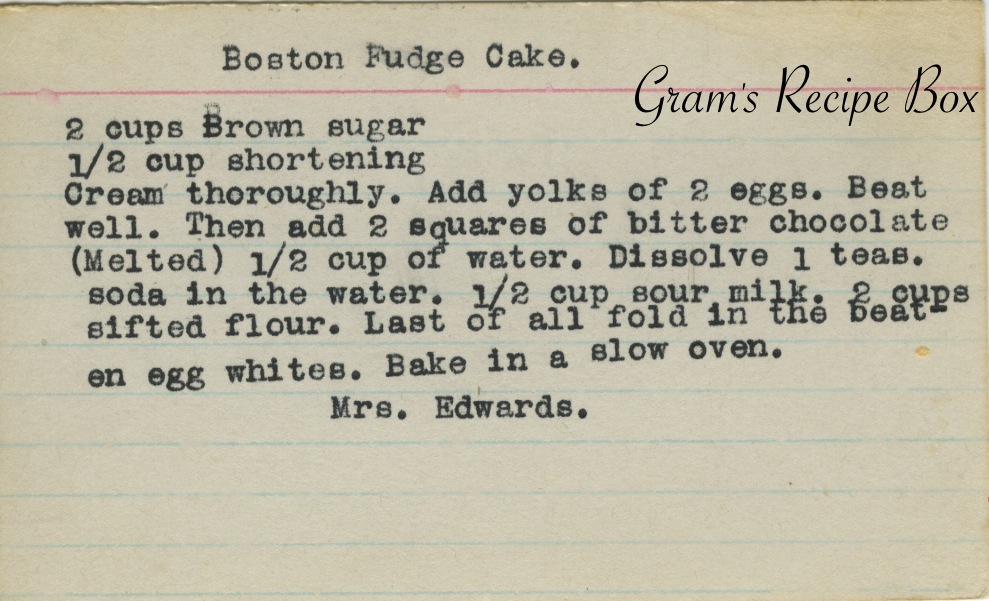 Boston Fudge Cake.
Gram's Recipe Box
2 cups Brown sugar
1/2 cup shortening
Cream thoroughly. Add yolks of 2 eggs. Beat
well. Then add 2 squares of bitter chocolate
(Melted) 1/2 cup of water. Dissolve 1 teas.
soda in the water. 1/2 cup sour milk. 2 cups
sifted flour. Last of all fold in the beat-
en egg whites. Bake in a slow oven.
Mrs. Edwards.